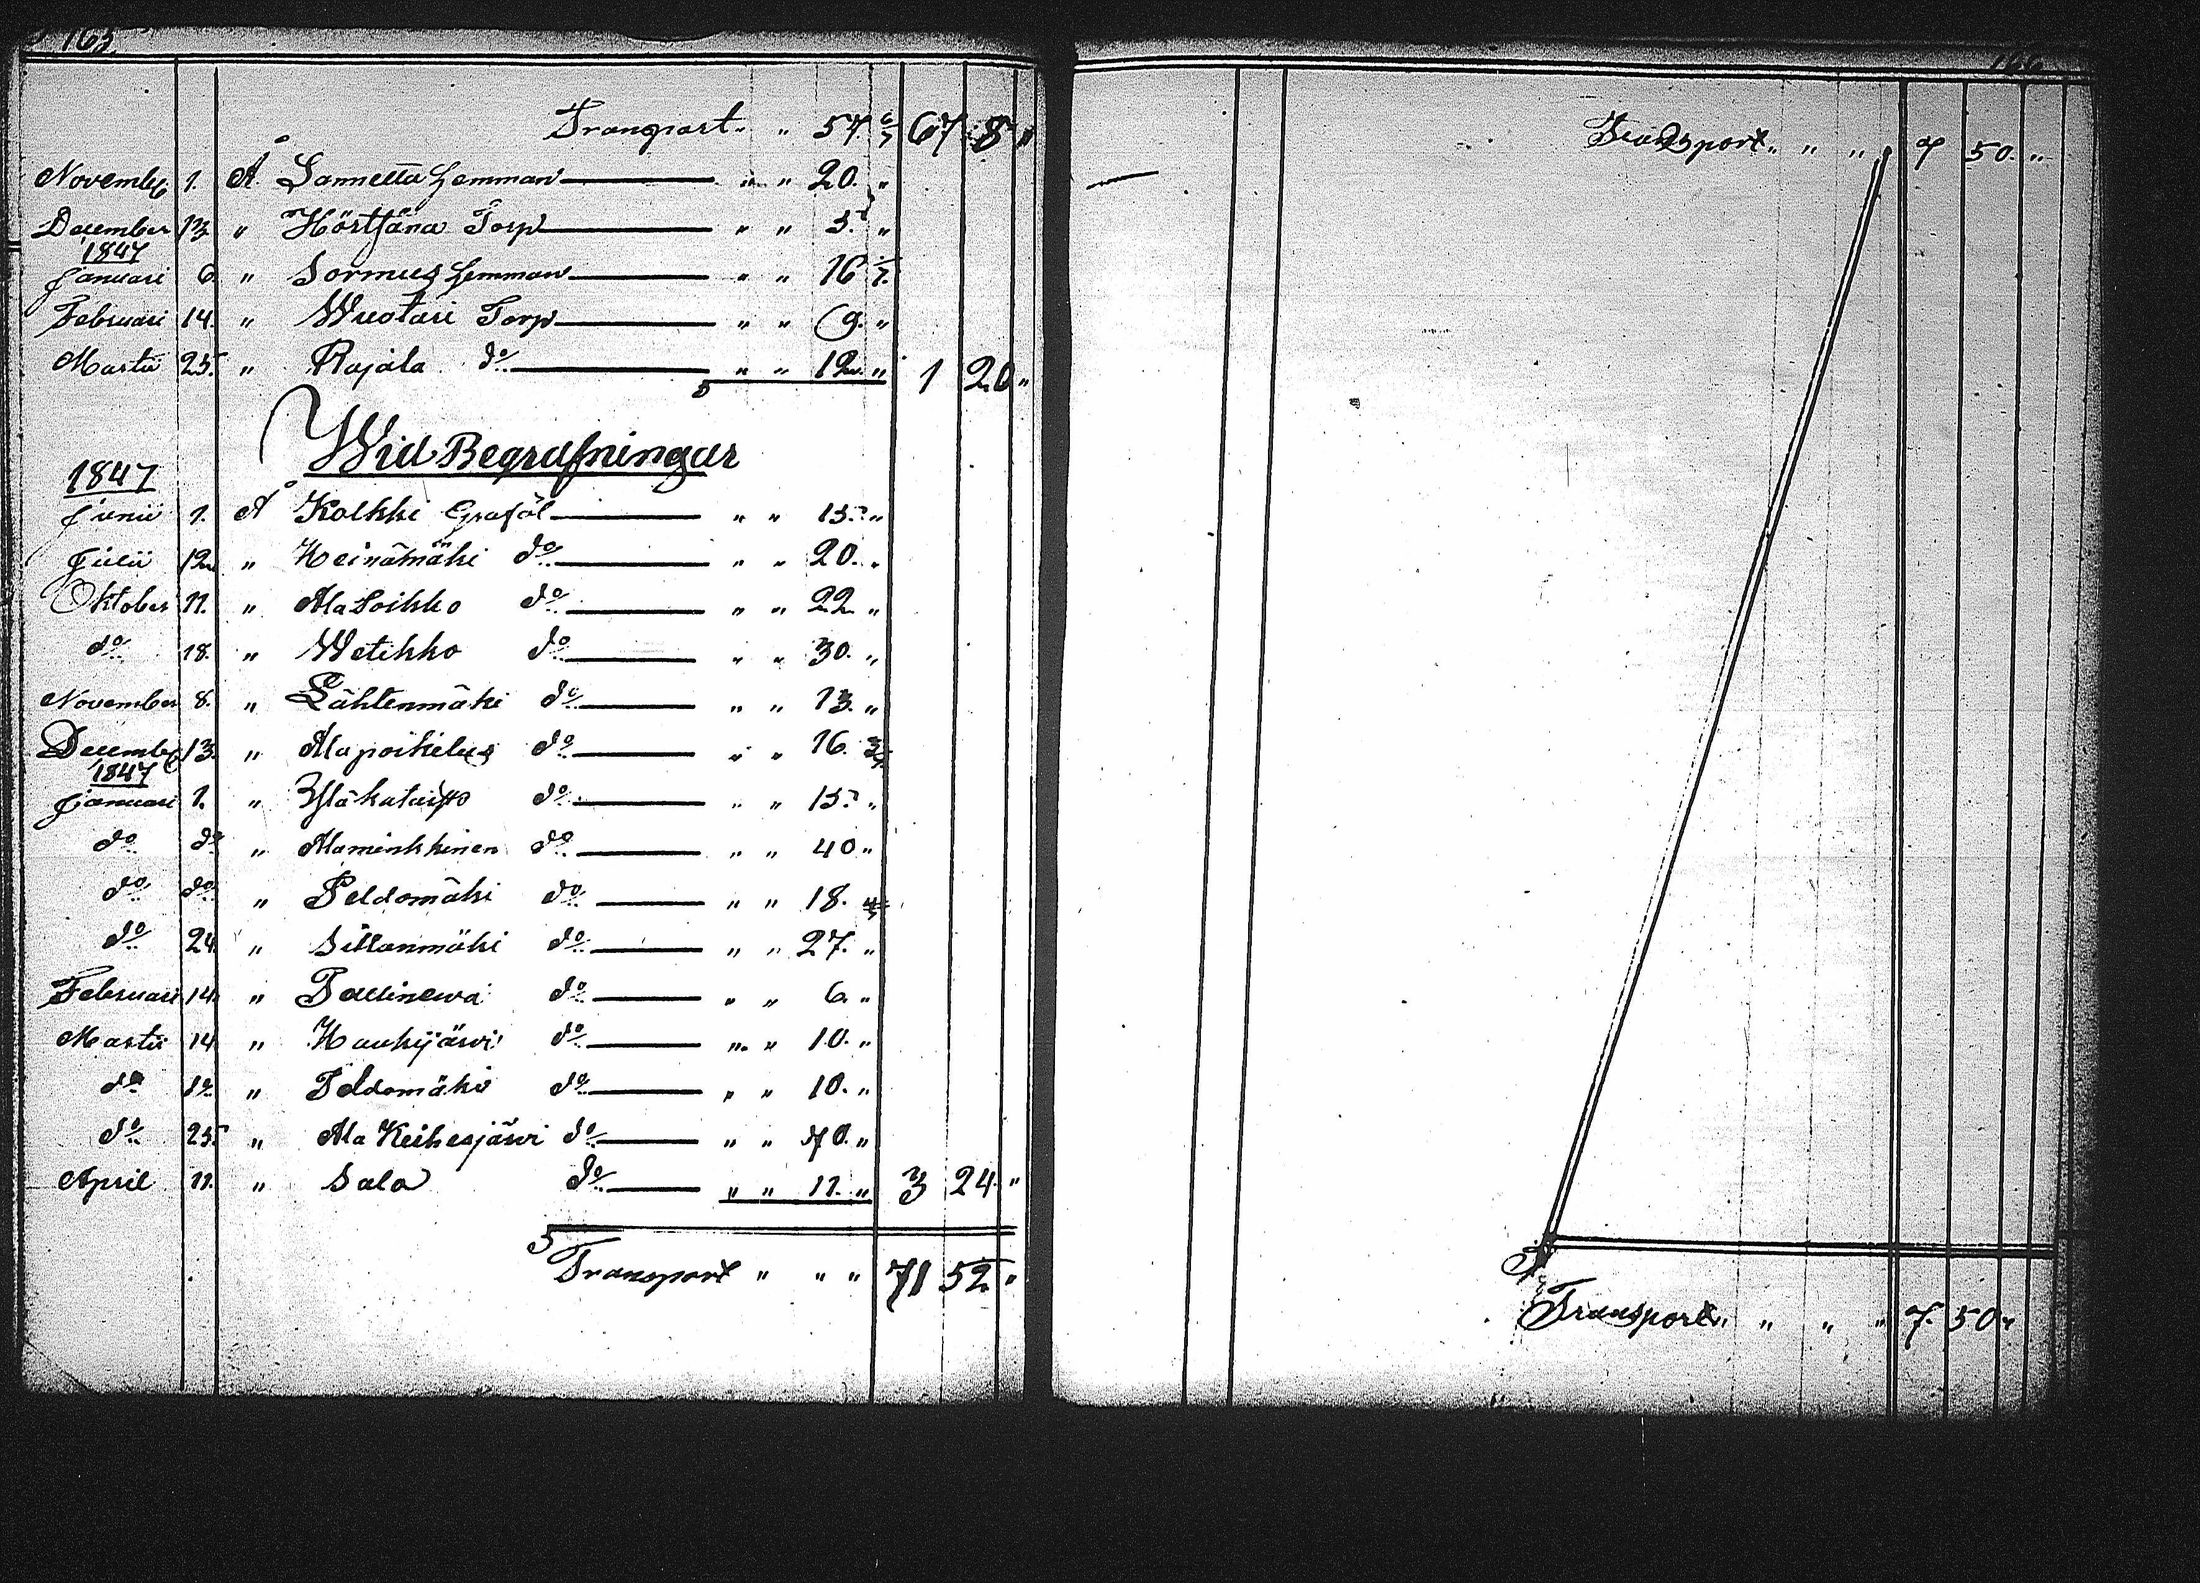 165
Transport " " 57 6/7 67 8 "
November 1. Å Sannetta Hemman " " 20. "
December 13 " Höstjäna Torp " " 5. "
1847
Januari 6 " Sormus Hemman " " 16 1/7
Februari 14. " Wuotari Torp " " 9. "
Martii 25. " Rajala do " " 12 " 1 20 "
Wid Begrafningar
1847
Junii 1. Å Kolkki Graföl " " 15. "
Julii 12 " Heinämäki do " " 20. "
Oktober 11. " Ala Soikko do " " 22 "
do 18. " Wetikko do " " 30. "
November 8. " Lähtenmäki do " " 13. "
December 13. " Alapoikelus do " " 16.
1847
Januari 1. " do " " 15. "
do do " Alaminkkinen do " " 40 "
do do " Peldomäki do " " 18.
do 24. " Sillanmäki do " " 27. "
Februari 14. " do " " 6. "
Martii 14 " Haukijärvi do " " 10. "
do do " Peldomäki do " " 10. "
do 25 " Ala Keihesjärvi do " " 40. "
April 11. " Sala do " " 11. " 3 24. "
Transport " " " 71 52. "
166
Transport " " " 7 50. "
Transport " " " " 7. 50 "